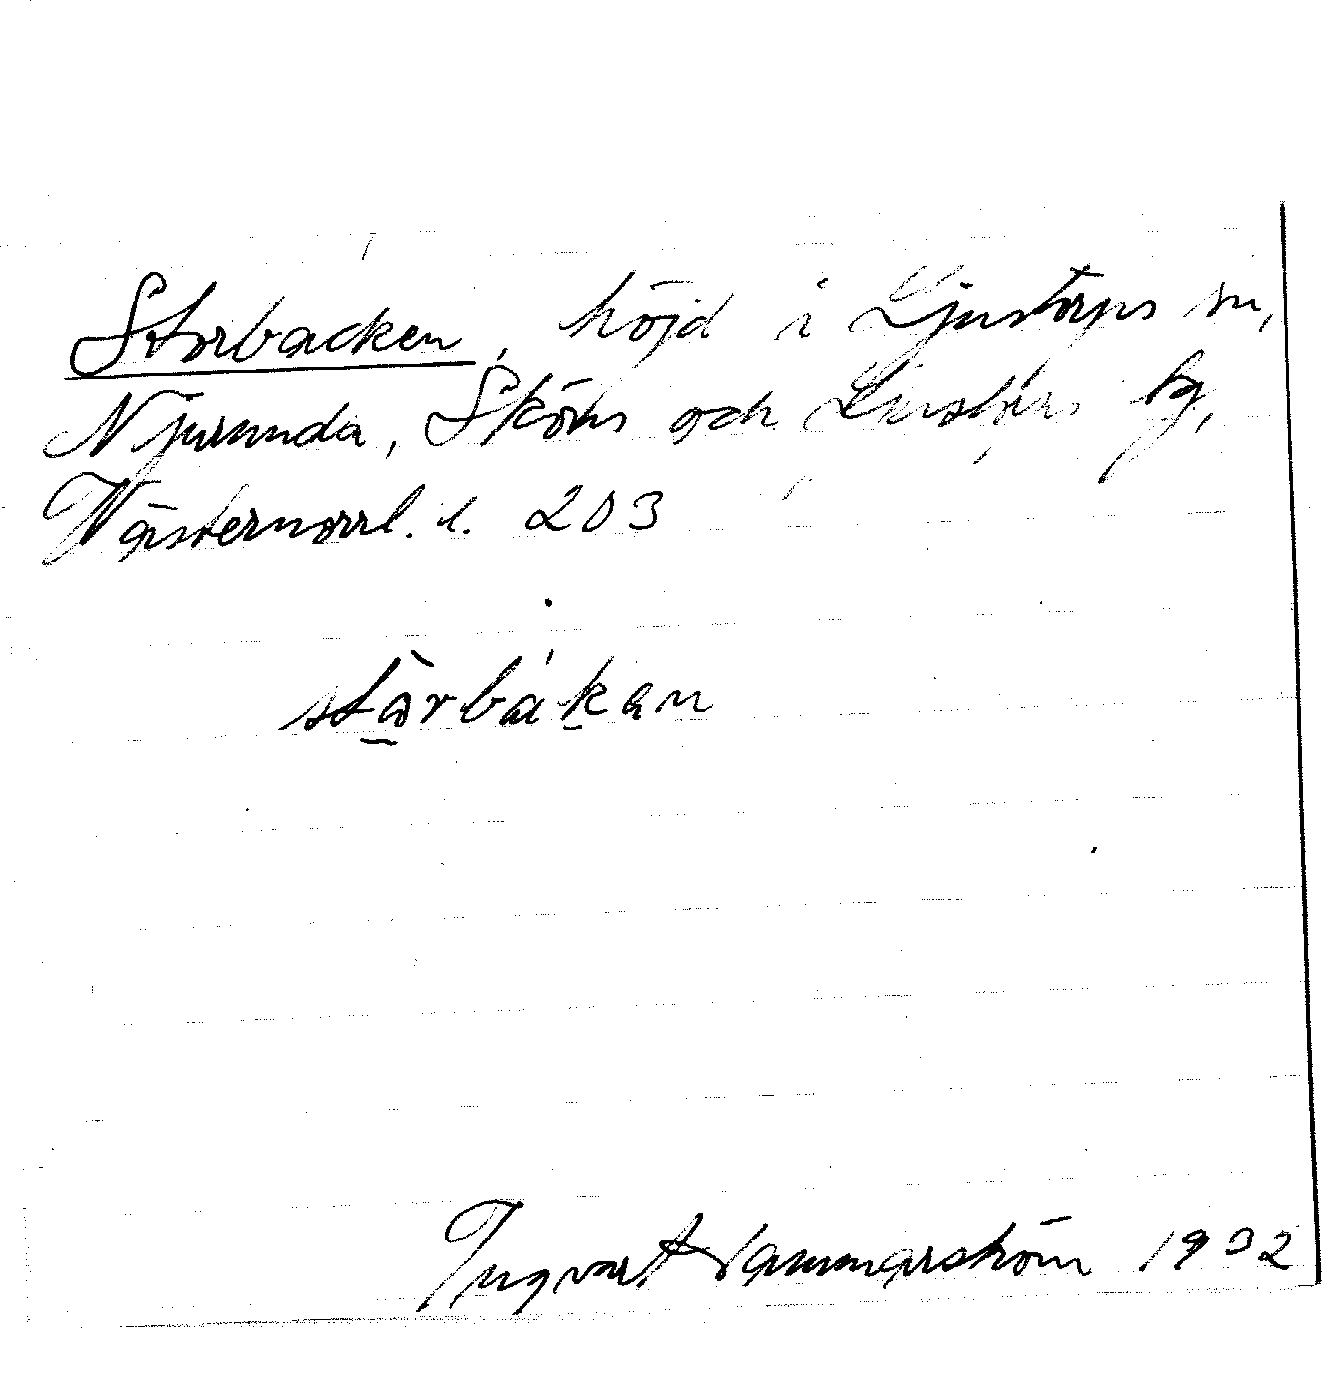 Storbacken, höjd i Ljustorps sn,
Njurunda, Sköns och Ljustorps tg,
Västernorrl. l. 203
stàrbákan
Ingvart Hammarström 1932